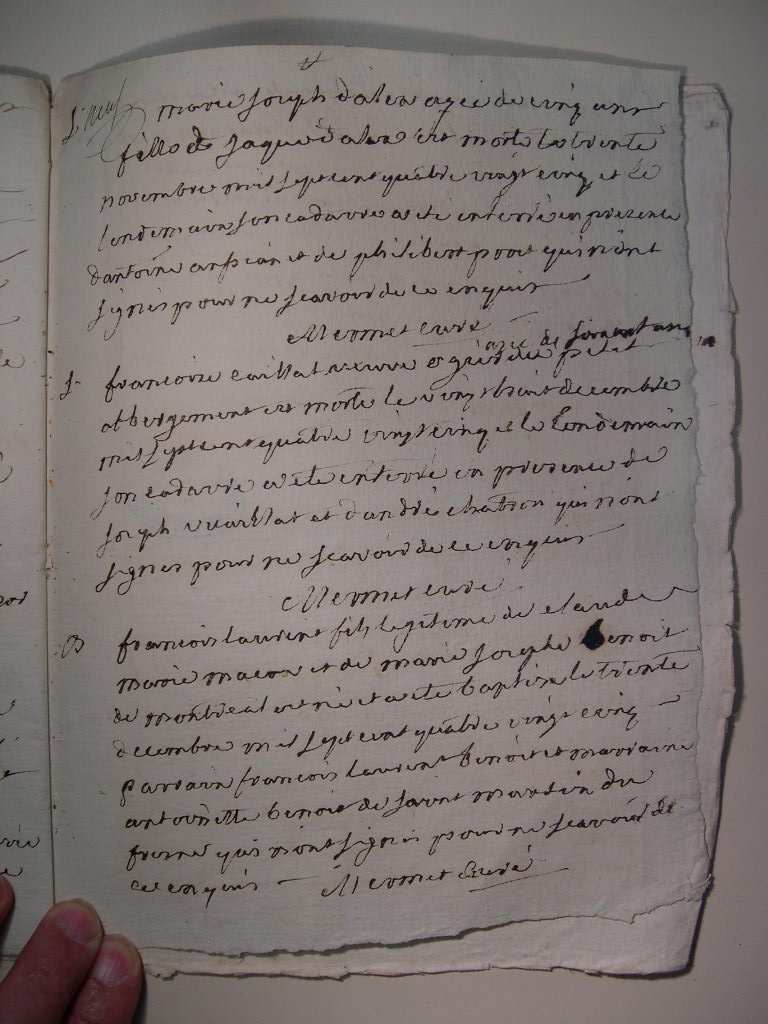 marie joseph dalex agée de cinq ans
fille de jaque dalex est morte le trente
novembre mil sept cent quatre vingt cinq et le
lendemain son cadavre a eté enterré en presence
d'antoine et de philibert qui n'ont
signés pour ne scavoir de ce enquis
Mermet curé
agée de soixante ans
S. francoise caillat veuve du petit
abbergement est morte le vingt huit decembre
mil sept cent quatre vingt cinq et le lendemain
son cadavre a ete enterré en presence de
joseph et d'andré chatron qui n'ont
signés pour ne scavoir de ce enquis
Mermet curé
B francois laurent fils legitime de claude
marie macon et de marie josephe benoit
de montreal est né et a ete baptisé le trente
decembre mil sept cent quatre vingt cinq
parrain francois laurent benoit et marraine
antoinette benoit de saint martin du
fresne qui n'ont signés pour ne scavoir de
ce enquis Mermet curé